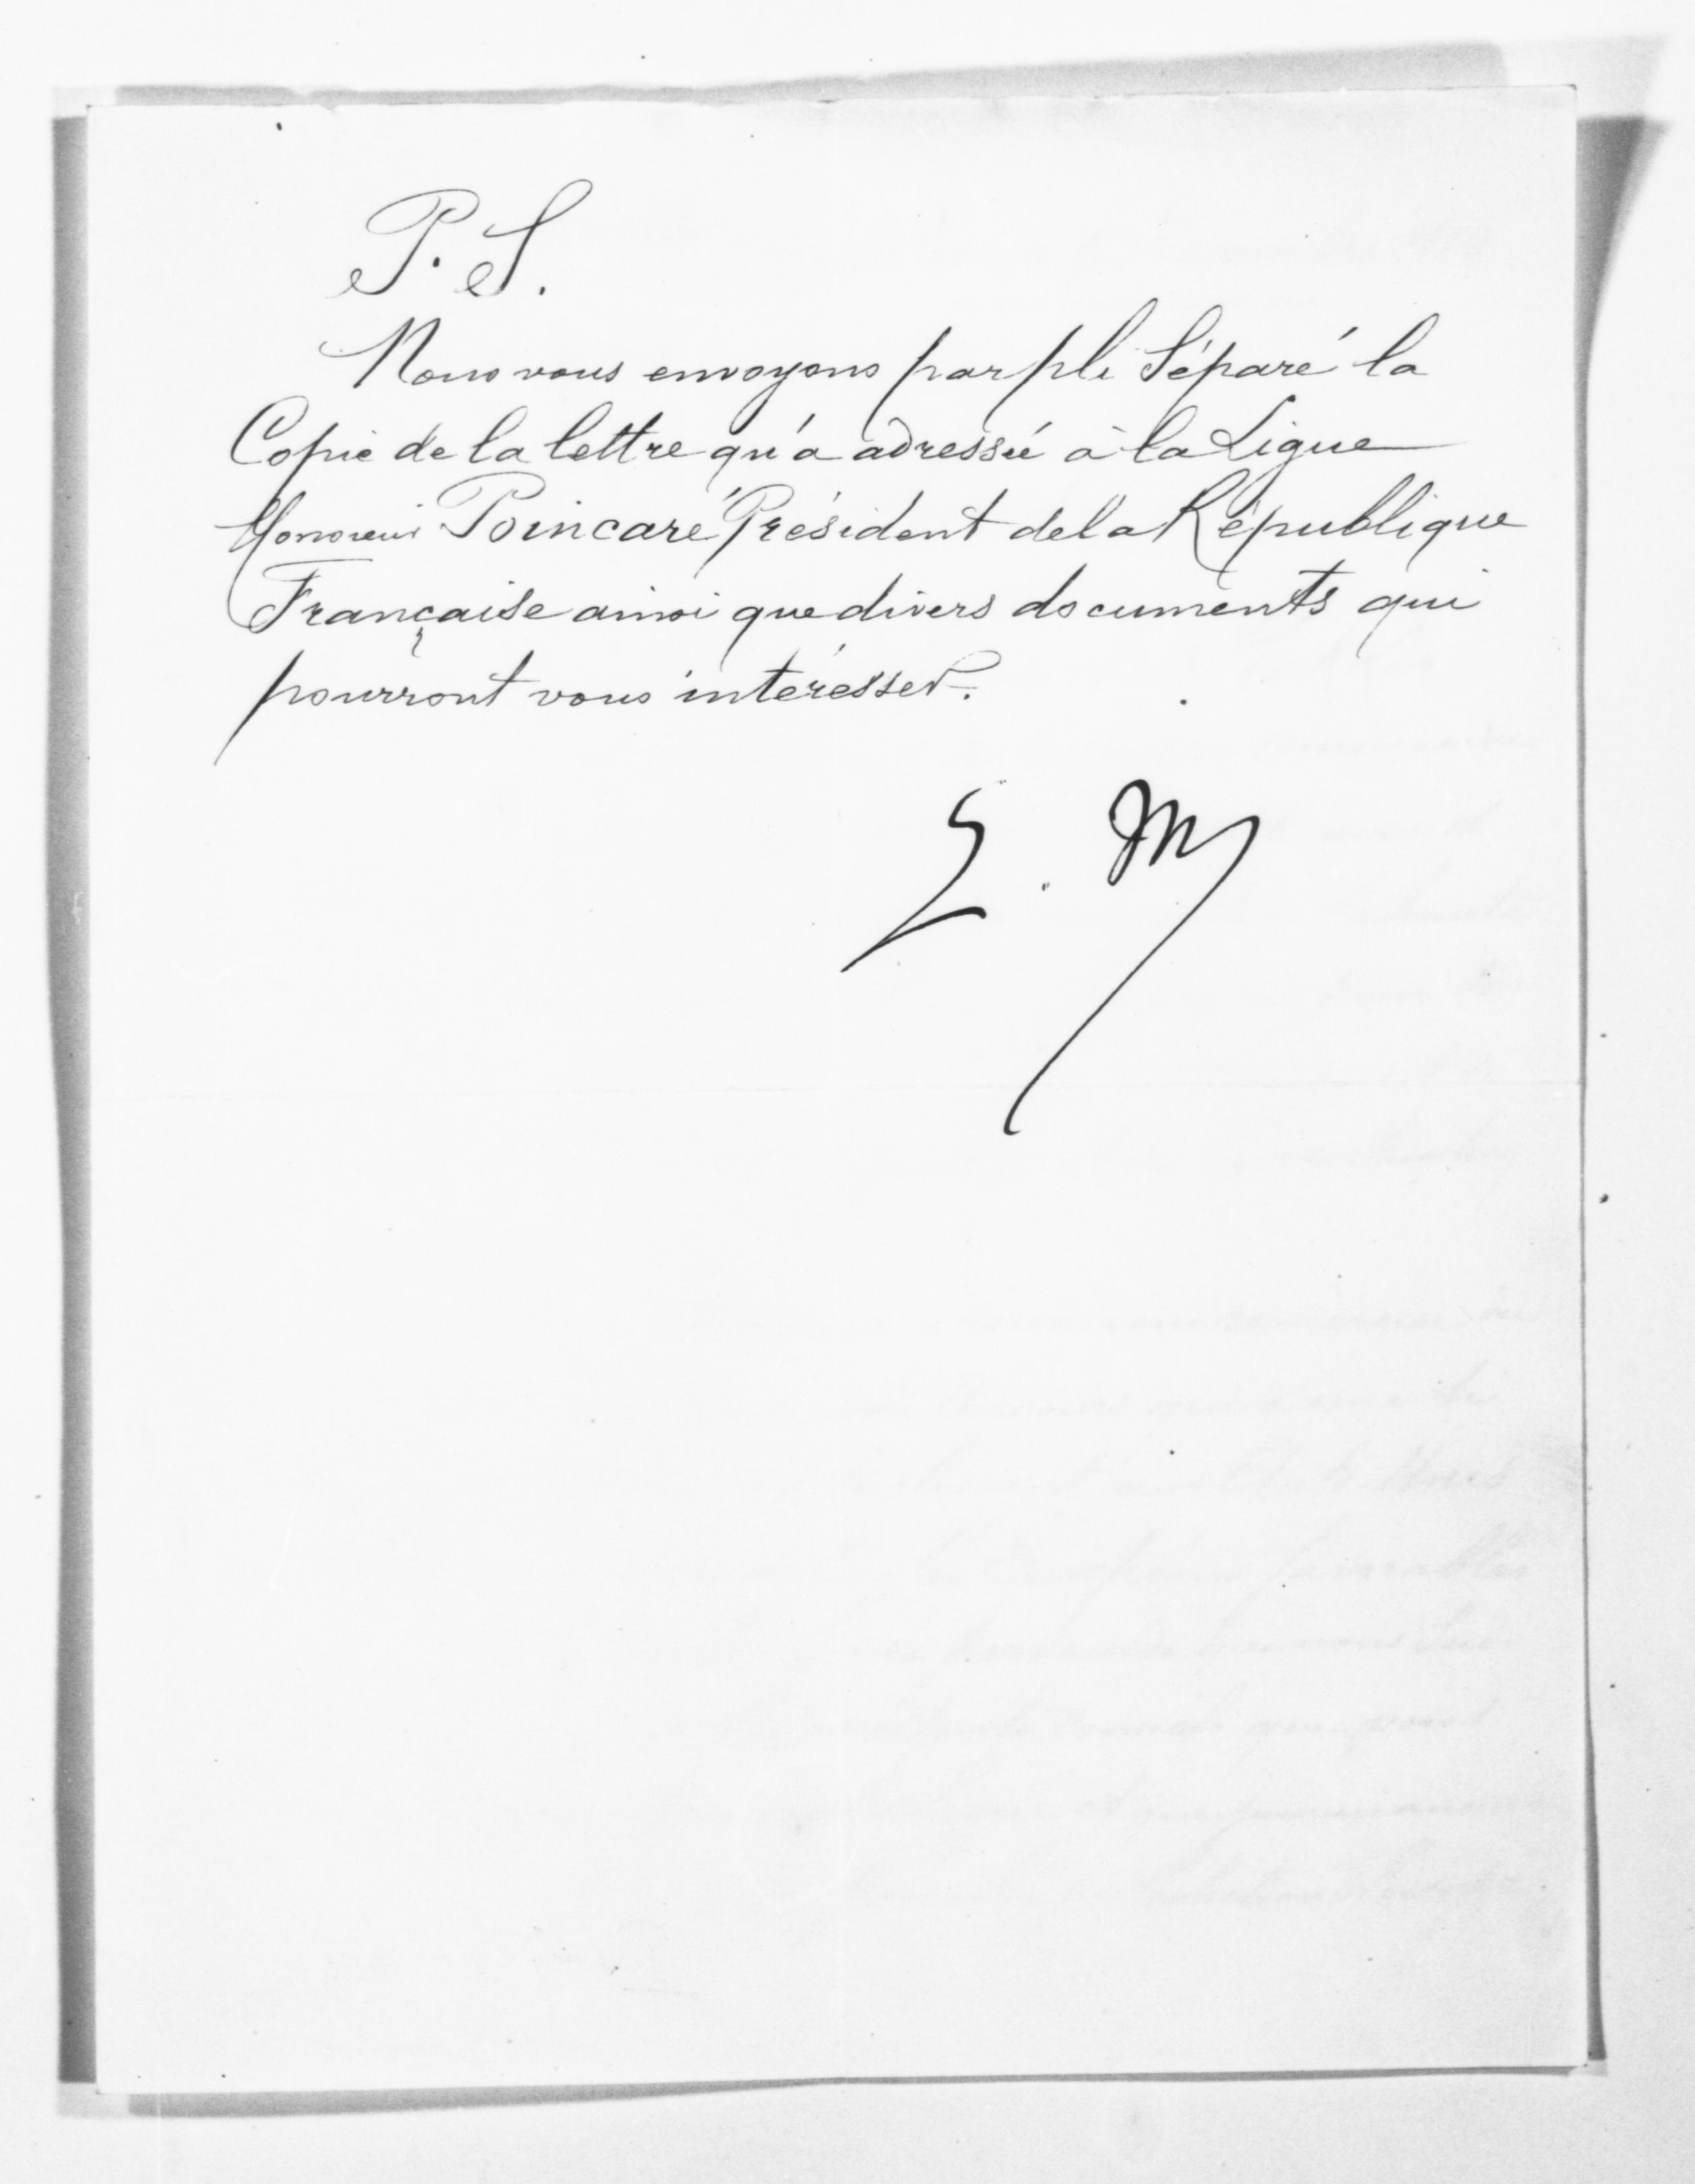 P. S.
Nous vous envoyons par pli Séparé la
Copie de la lettre qu'a adressée à la Ligue
Monsieur Poincaré Président de la République
Française ainsi que divers documents qui
pourront vous intéresser.
L. M